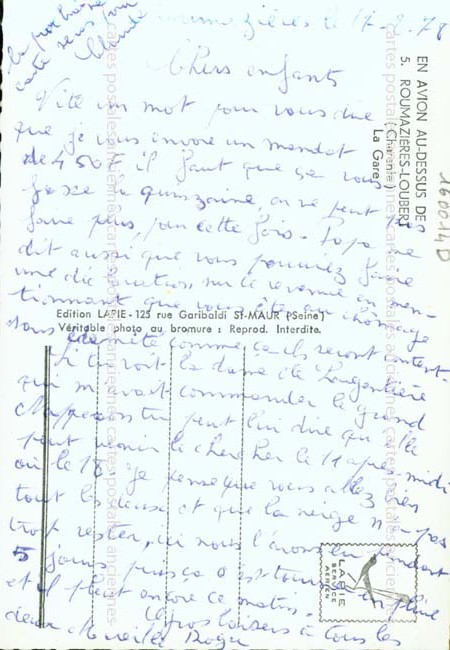 la prochaine
carte sera pour
Claude
Roumazières le 17-2-78
Chers enfants
Vite un mot pour vous dire
que je vous envoie un mandat
de 450 F il faut que ça vous
fasse la quinzaine, on ne peut pas
faire plus, pour cette fois. Papa me
dit aussi que vous pouviez faire
une déclaration sur le revenu en men-
tionnant que vous êtes au chômage
sans indemnité comme ça ils seront content.
Si tu vois la dame de
qui m'avait commander le grand
tu peut lui dire qu'elle
peut venir le chercher le 11 après midi
ou le 18. Je pense que vous allez bien
tout les deux et que la neige n'a pas
trop rester, ici nous l'avons eu pendant
5 jours puis ça s'est tourné en pluie
et il pleut encore ce matin.
Gros baisers à tous les
deux Mireille Roger
EN AVION AU-DESSUS DE
5. ROUMAZIÈRES-LOUBERT
(Charente)
La Gare
160014D
Edition LAPIE - 125 rue Garibaldi ST-MAUR (Seine)
Véritable photo au bromure : Reprod. Interdite.
LAPIE
SERVICE
AERIEN
cartes postales anciennes